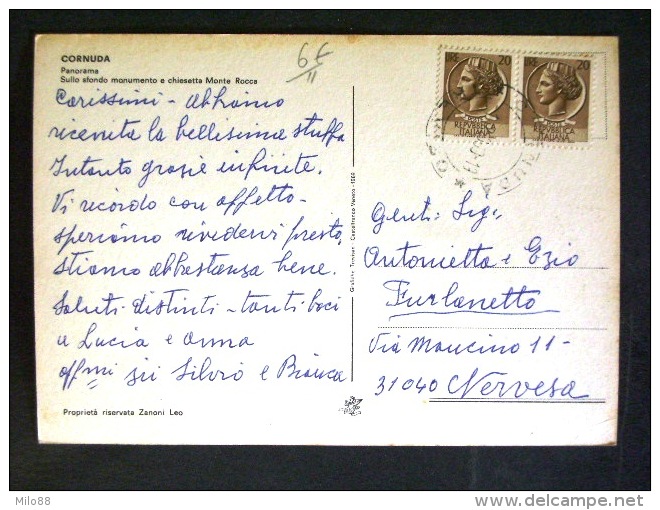 CORNUDA
Panorama
Sullo sfondo monumento e chiesetta Monte Rocca
6€
Carissimi - abbiamo
ricevuta la bellissima stuffa
Intanto grazie infinite.
Vi ricordo con affetto -
speriamo rivedervi presto,
stiamo abbastanza bene.
Saluti distinti - tanti baci
a Lucia e Anna
aff.mi zii Silvio e Bianca
Proprietà riservata Zanoni Leo
LIRE 20
REPUBBLICA
ITALIANA
LIRE 20
REPUBBLICA
ITALIANA
CORNUDA
Gent: Sig:
Antonietta e Ezio
Furlanetto
Via Mancino 11 -
31040 Nervesa
Milo88
www.delcampe.net